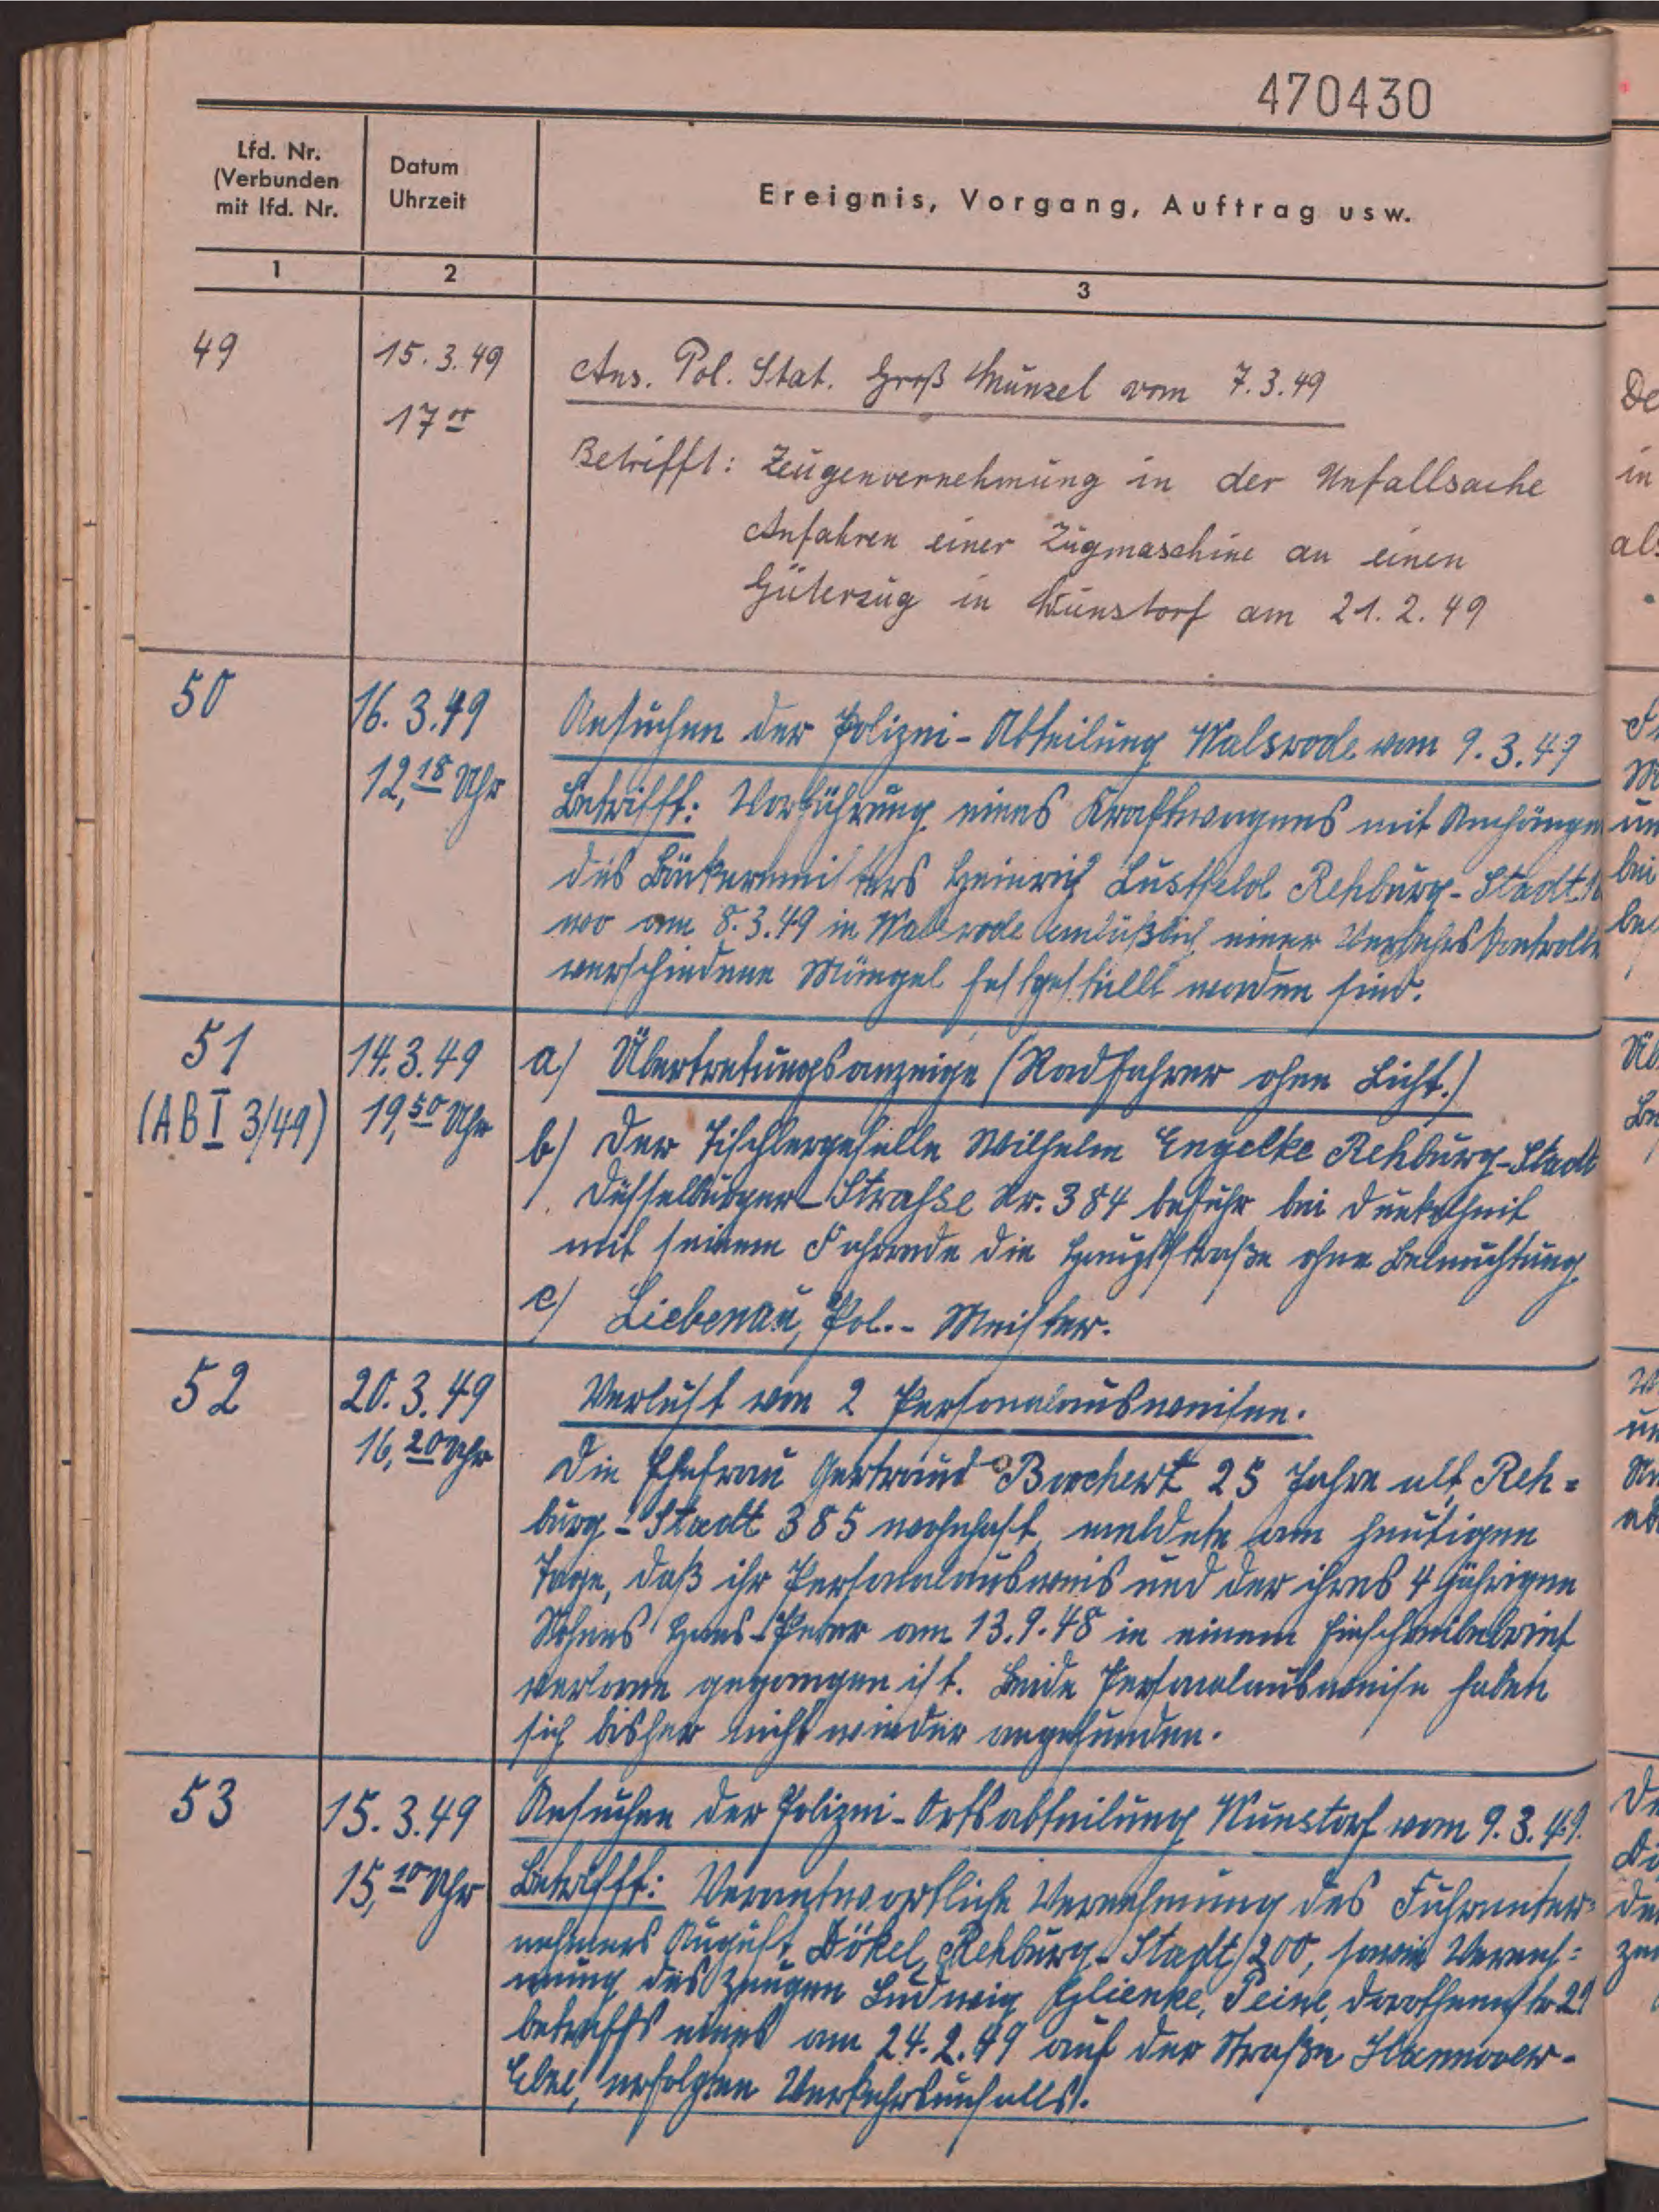 470430
Lfd. Nr.
(Verbunden
mit lfd. Nr.
Datum
Uhrzeit
Ereignis, Vorgang, Auftrag usw.
1
2
3
49
15.3.49
17 00
Ans. Pol. Stat. Groß Munzel vom 7.3.49
Betrifft: Zeugenvernehmung in der Unfallsache
Anfahren einer Zugmaschine an einen
Güterzug in Wunstorf am 21.2.49
50
16.3.49
12,18 Uhr
Ansuchen der Polizei-Abteilung Walsrode vom 9.3.49
Betrifft: Vorführung eines Kraftwagens mit Anhänger
des Bäckermeisters Heinrich Lustfeld Rehburg-Stadt
wo am 8.3.49 in Walsrode anläßlich einer Verkehrskontrolle
verschiedene Mängel festgestellt worden sind.
51
(AB I 3/49)
14.3.49
19,50 Uhr
a) Übertretungsanzeige (Radfahrer ohne Licht.)
b) Der Tischlergeselle Wilhelm Engelke Rehburg-Stadt
Düsselburger-Strasse Nr. 384 befuhr bei Dunkelheit
mit seinem Fahrrade die Hauptstraße ohne Beleuchtung
c) Liebenau, Pol.- Meister.
52
20.3.49
16,20 Uhr
Verlust von 2 Personalausweisen.
Die Ehefrau Gertraud Borchert 25 Jahre alt, Reh=
burg-Stadt 385 wohnhaft, meldete am heutigen
Tage, daß ihr Personalausweis und der ihres 4 jährigen
Sohnes Hans-Peter am 13.9.48 in einem Einschreibebrief
verloren gegangen ist. Beide Personalausweise haben
sich bisher nicht wieder angefunden.
53
15.3.49
15,10 Uhr
Ansuchen der Polizei-Ortsabteilung Wunstorf vom 9.3.49.
Betrifft: Verantwortliche Vernehmung des Fuhrunter=
nehmers August Dökel, Rehburg-Stadt 200, sowie Verneh=
mung des Zeugen Ludwig Glienke, Peine, Dorotheenstr 21
betreffs eines am 24.2.49 auf der Straße Hannover-
Elze, erfolgten Verkehrsunfalls.